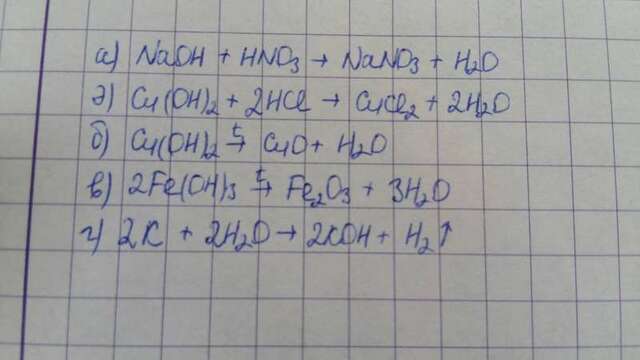 а) NaOH + HNO₃ → NaNO₃ + H₂O
д) Cu(OH)₂ + 2HCl → CuCl₂ + 2H₂O
б) Cu(OH)₂ t→ CuO + H₂O
в) 2Fe(OH)₃ t→ Fe₂O₃ + 3H₂O
г) 2K + 2H₂O → 2KOH + H₂↑